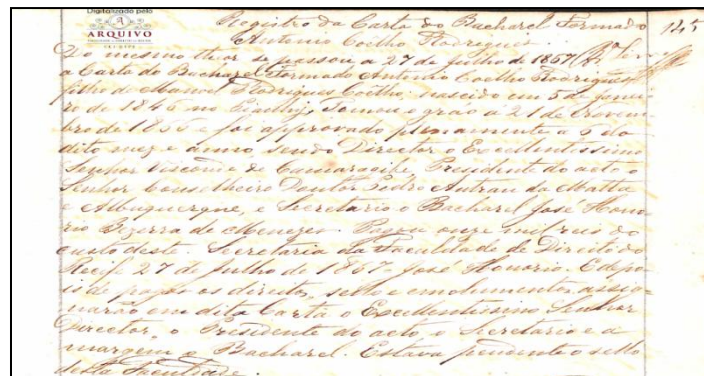 Digitalizado pelo
ARQUIVO
Registro da Carta do Bacharel Formado
Antonio Coelho Rodrigues.
145
Do mesmo theor se passou a 27 de Julho de 1867
a Carta do Bacharel Formado Antonio Coelho Rodrigues,
filho de Manoel Rodrigues Coelho, nascido em 5 de Janei-
ro de 1846 no Piauhy. Tomou o gráo a 21 de Novem-
bro de 1866 e foi approvado plenamente a 5 do
dito mez e anno, sendo Director o Excellentissimo
Senhor Visconde de Camaragibe, Presidente do acto o
Senhor Conselheiro Doutor Pedro Autran da Matta
e Albuquerque, e Secretario o Bacharel José Hono-
rio Bezerra de Menezes. Pagou onze mil reis do
custo deste. Secretaria da Faculdade de Direito do
Recife 27 de Julho de 1867. José Honorio. E depo-
is de pagos os direitos, sello e emolumentos assig-
narão em dita Carta o Excellentissimo Senhor
Director, o Presidente do acto, o Secretario e a
margem o Bacharel. Estava pendente o sello
desta Faculdade.